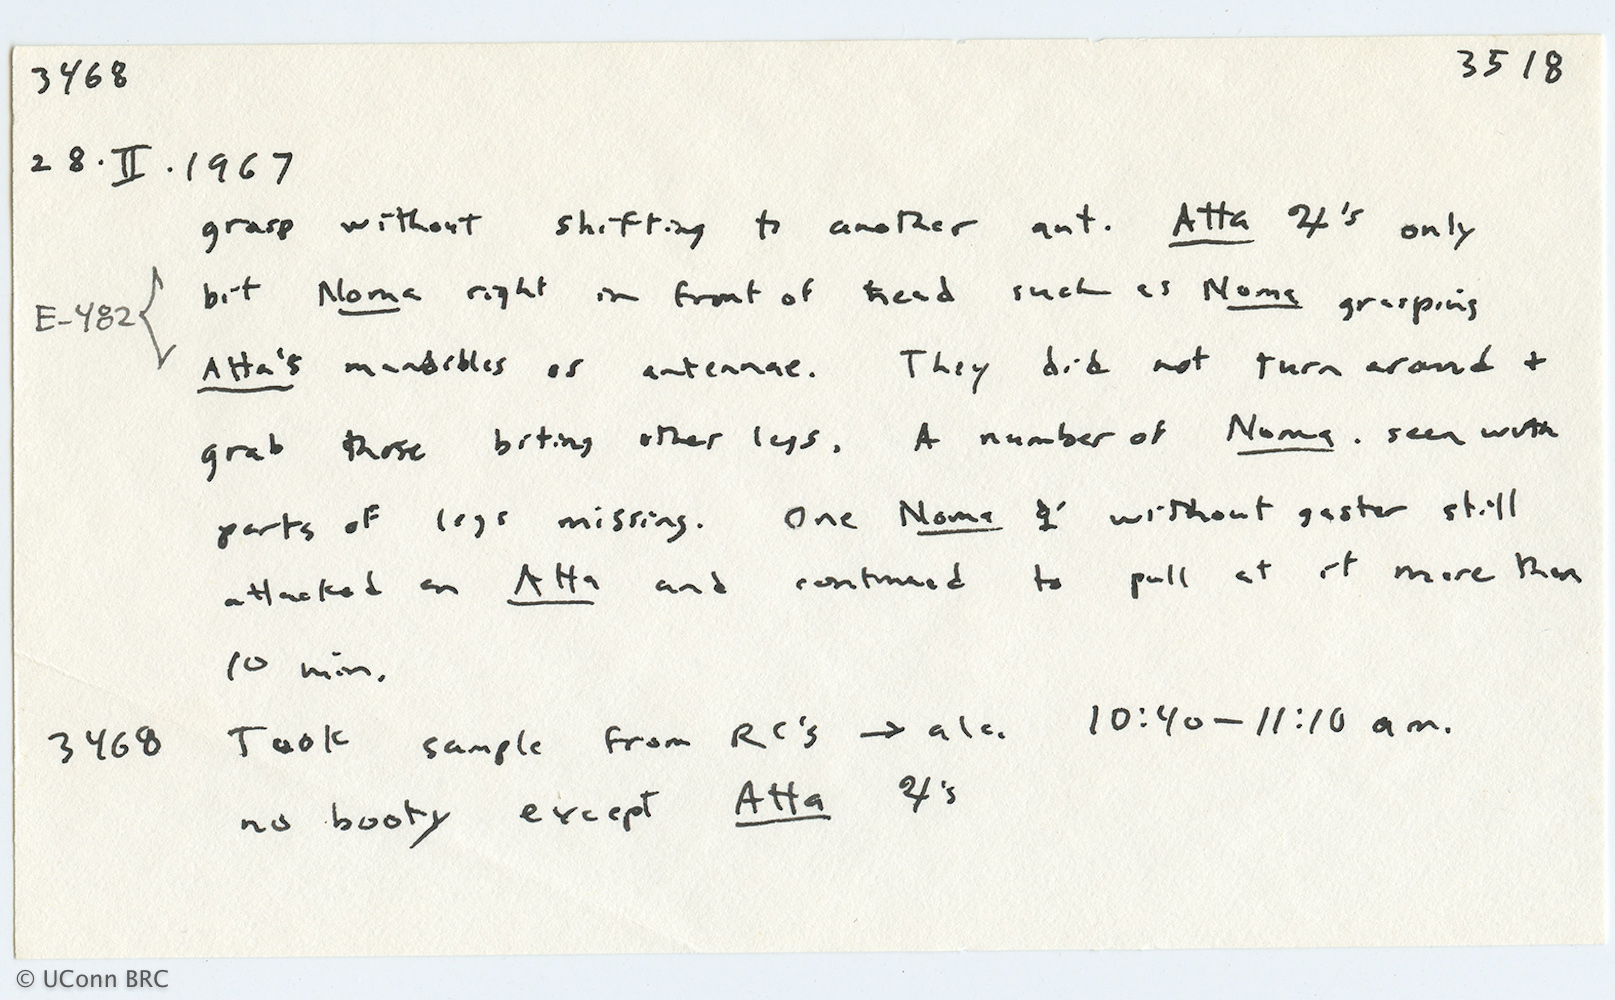 3468 3518
28·II·1967
grasp without shifting to another ant. Atta ♃'s only
bit Noma right in front of head such as Noma grasping
E-482
Atta's mandibles or antennae. They did not turn around +
grab those biting other legs. A number of Noma. seen with
parts of legs missing. One Noma without gaster still
attacked an Atta and continued to pull at it more than
10 min.
3468 Took sample from RC's → alc. 10:40–11:10 am.
no booty except Atta ♃'s
© UConn BRC